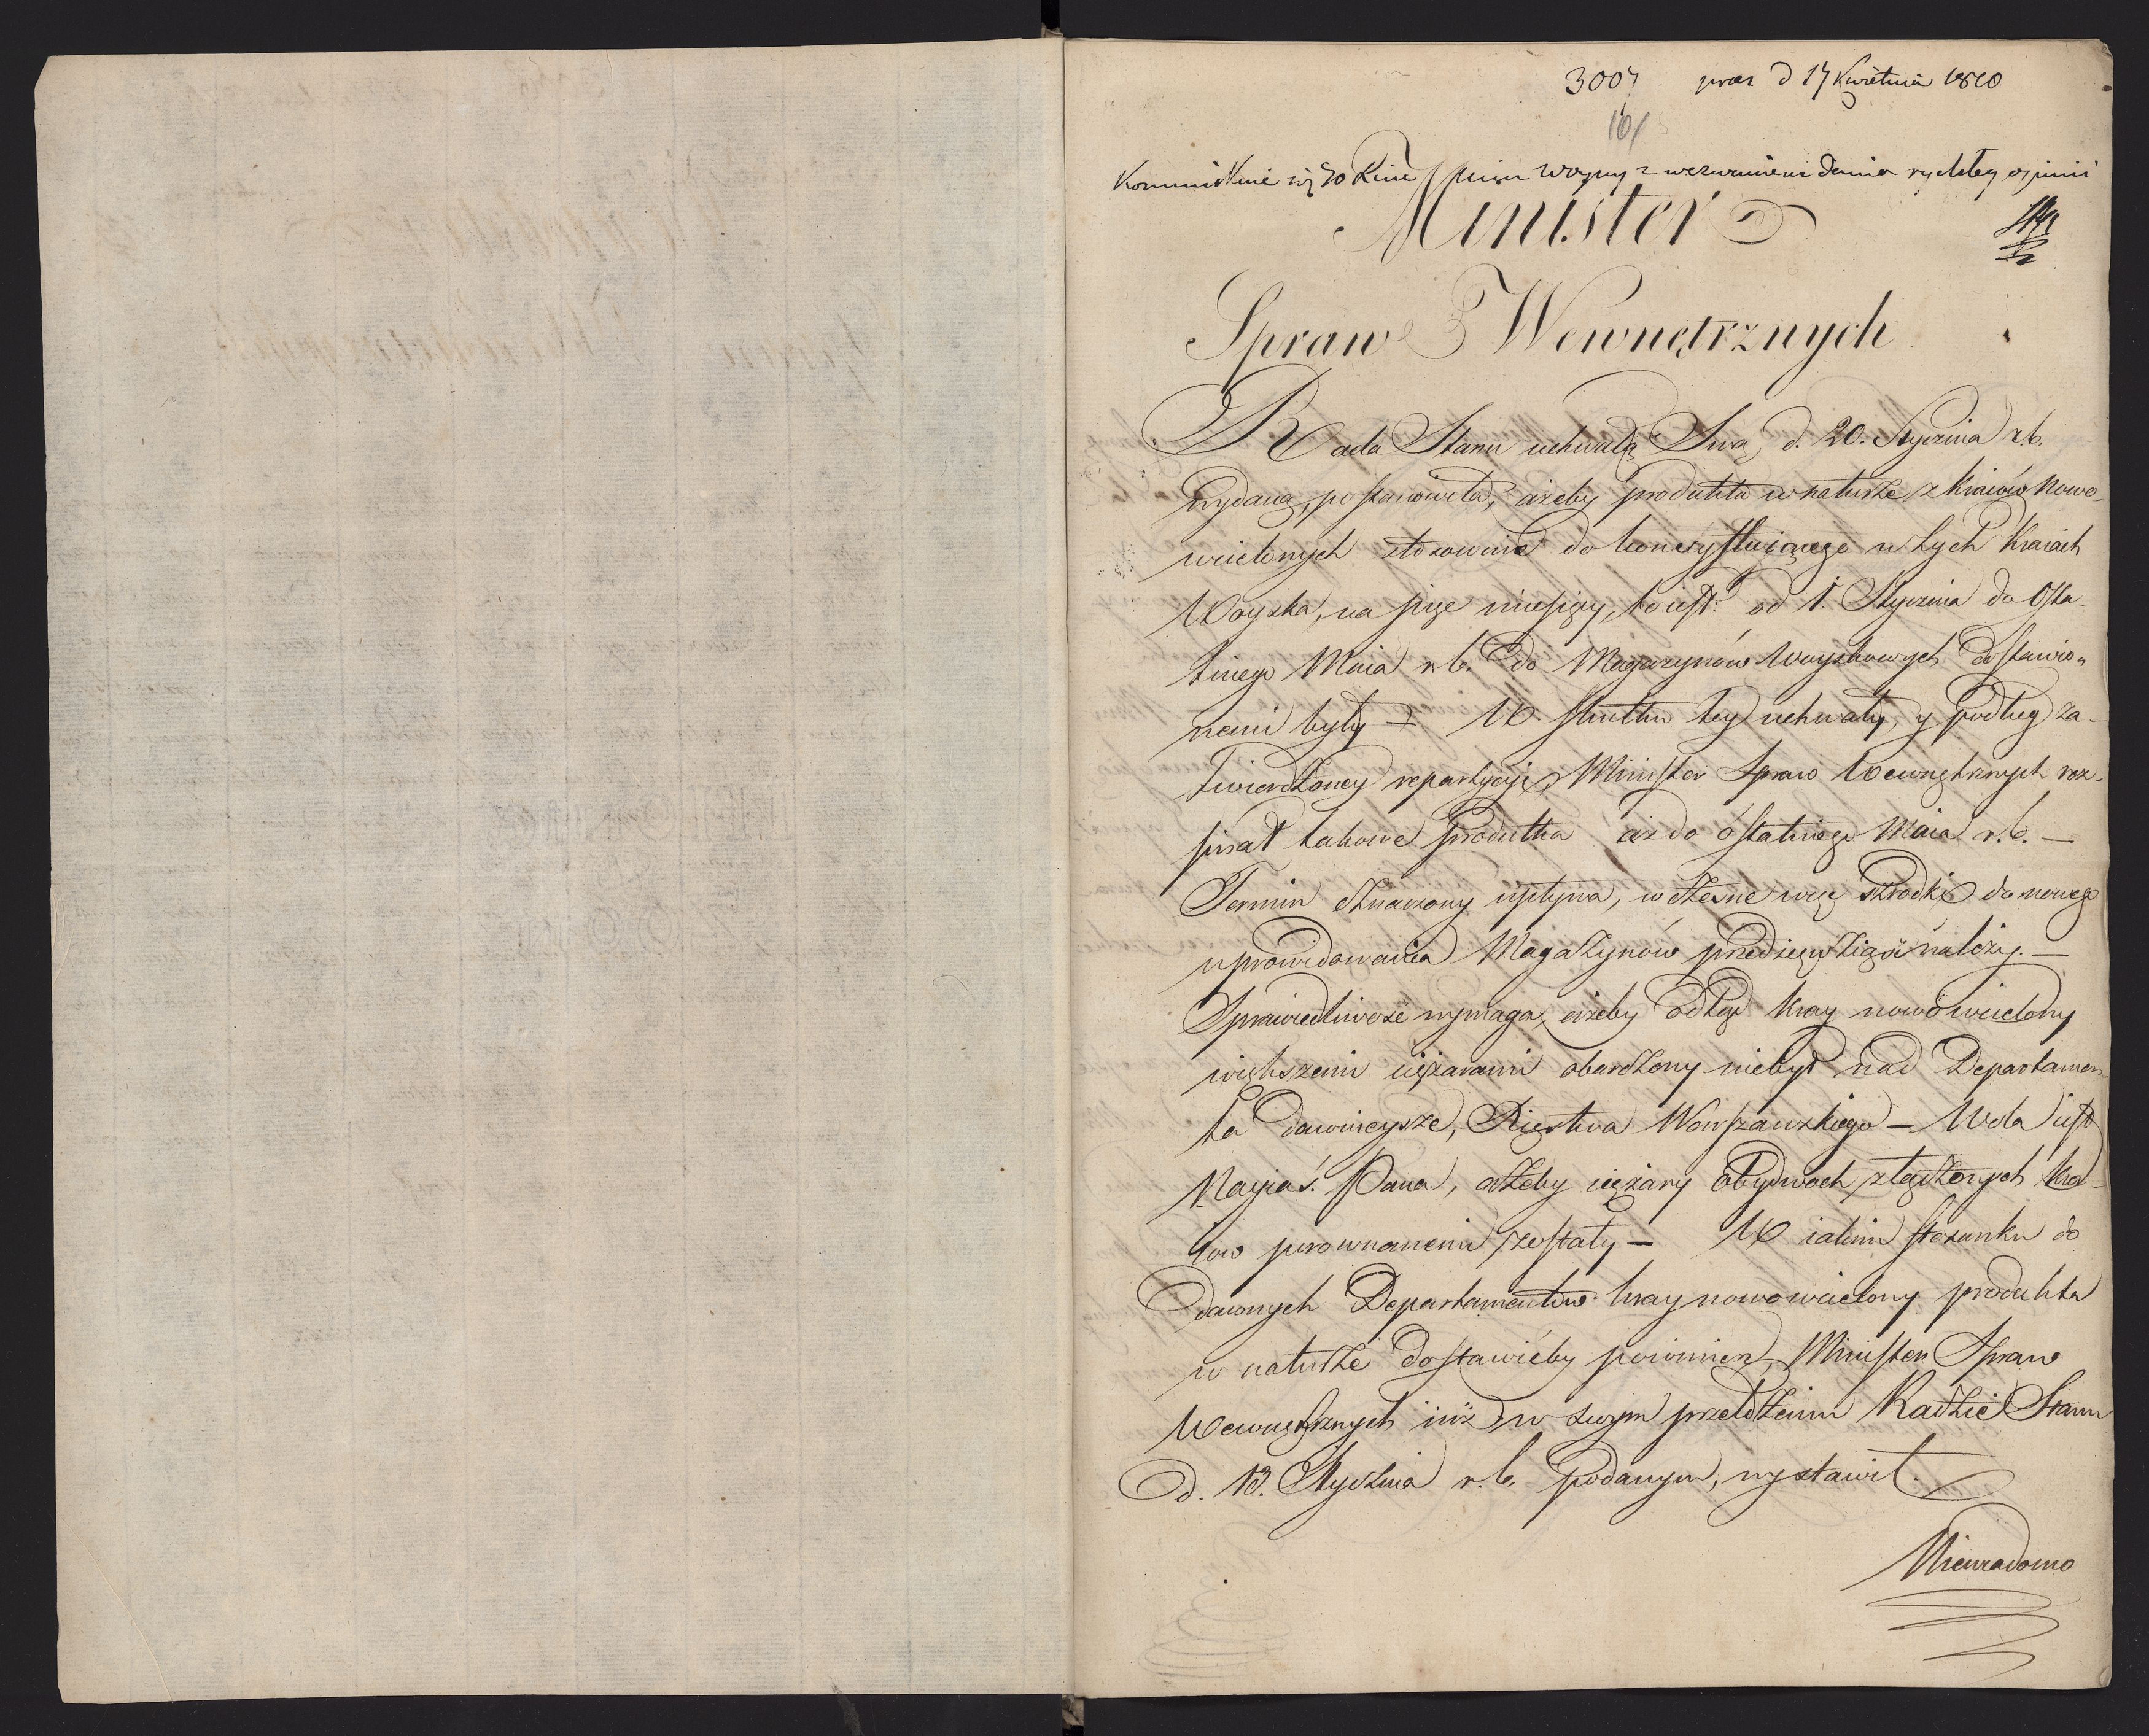 3007 praes d 17 Kwietnia 1810
161
wezwaniem dania rychłey opinii
Minister
Spraw Wewnętrznych
Rada Stanu uchwałą Swą d. 20. Stycznia r.b.
wydaną, postanowiła, ażeby produkta w naturze z kraiów nowo-
wcielonych stosownie do konsystuiącego w tych Kraiach
Woyska, na pięć miesięcy, to iest: od 1. Stycznia do Osta-
tniego Maia r.b. do Magazynów woyskowych dostawio-
nemi były — W skutku tey uchwały, y podług za-
twierdzoney repartycyi Minister Spraw Wewnętrznych roz-
pisał takowe produkta aż do ostatniego Maia r.b. —
Termin oznaczony upływa, wczesne więc szrodki do nowego
uprowidowania Magazynów przedsięwziąść należy. —
Sprawiedliwość wymaga, ażeby odtąd kray nowowcielony
większemi ciężarami obarczony niebył nad Departamen-
ta dawnieysze, Xięstwa Warszawskiego — Wola iest
Nayiaś. Pana, ażeby ciężary obydwoch złączonych kra-
iow porownanemi zostały — W iakim stosunku do
dawnych Departamentów kray nowowcielony produkta
w naturze dostawićby powinien, Minister Spraw
Wewnętrznych iuż w swym przełożeniu Radzie Stanu
d. 13. Stycznia r.b. podanym, wystawił.
Nieuradomo